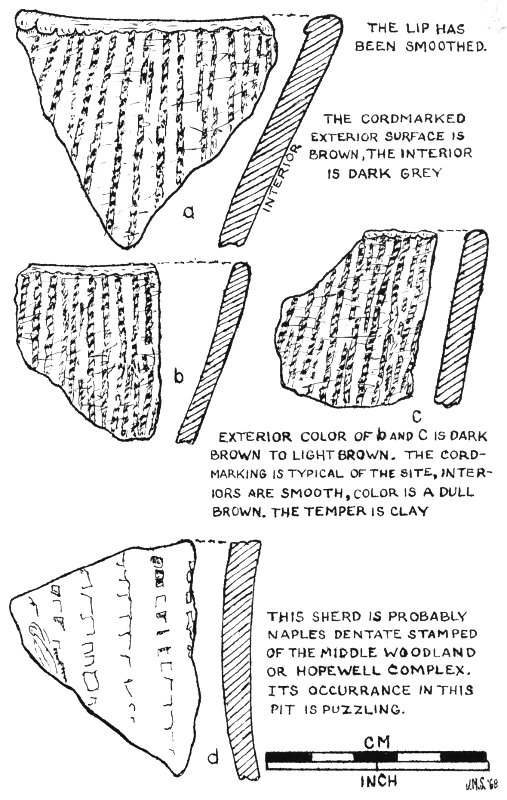 THE LIP HAS
BEEN SMOOTHED.
THE CORDMARKED
EXTERIOR SURFACE IS
BROWN, THE INTERIOR
IS DARK GREY
INTERIOR
a
b
C
EXTERIOR COLOR OF b AND C IS DARK
BROWN TO LIGHT BROWN. THE CORD-
MARKING IS TYPICAL OF THE SITE, INTER-
IORS ARE SMOOTH, COLOR IS A DULL
BROWN. THE TEMPER IS CLAY
THIS SHERD IS PROBABLY
NAPLES DENTATE STAMPED
OF THE MIDDLE WOODLAND
OR HOPEWELL COMPLEX.
ITS OCCURRANCE IN THIS
PIT IS PUZZLING.
d
CM
INCH
J.M.S. '68